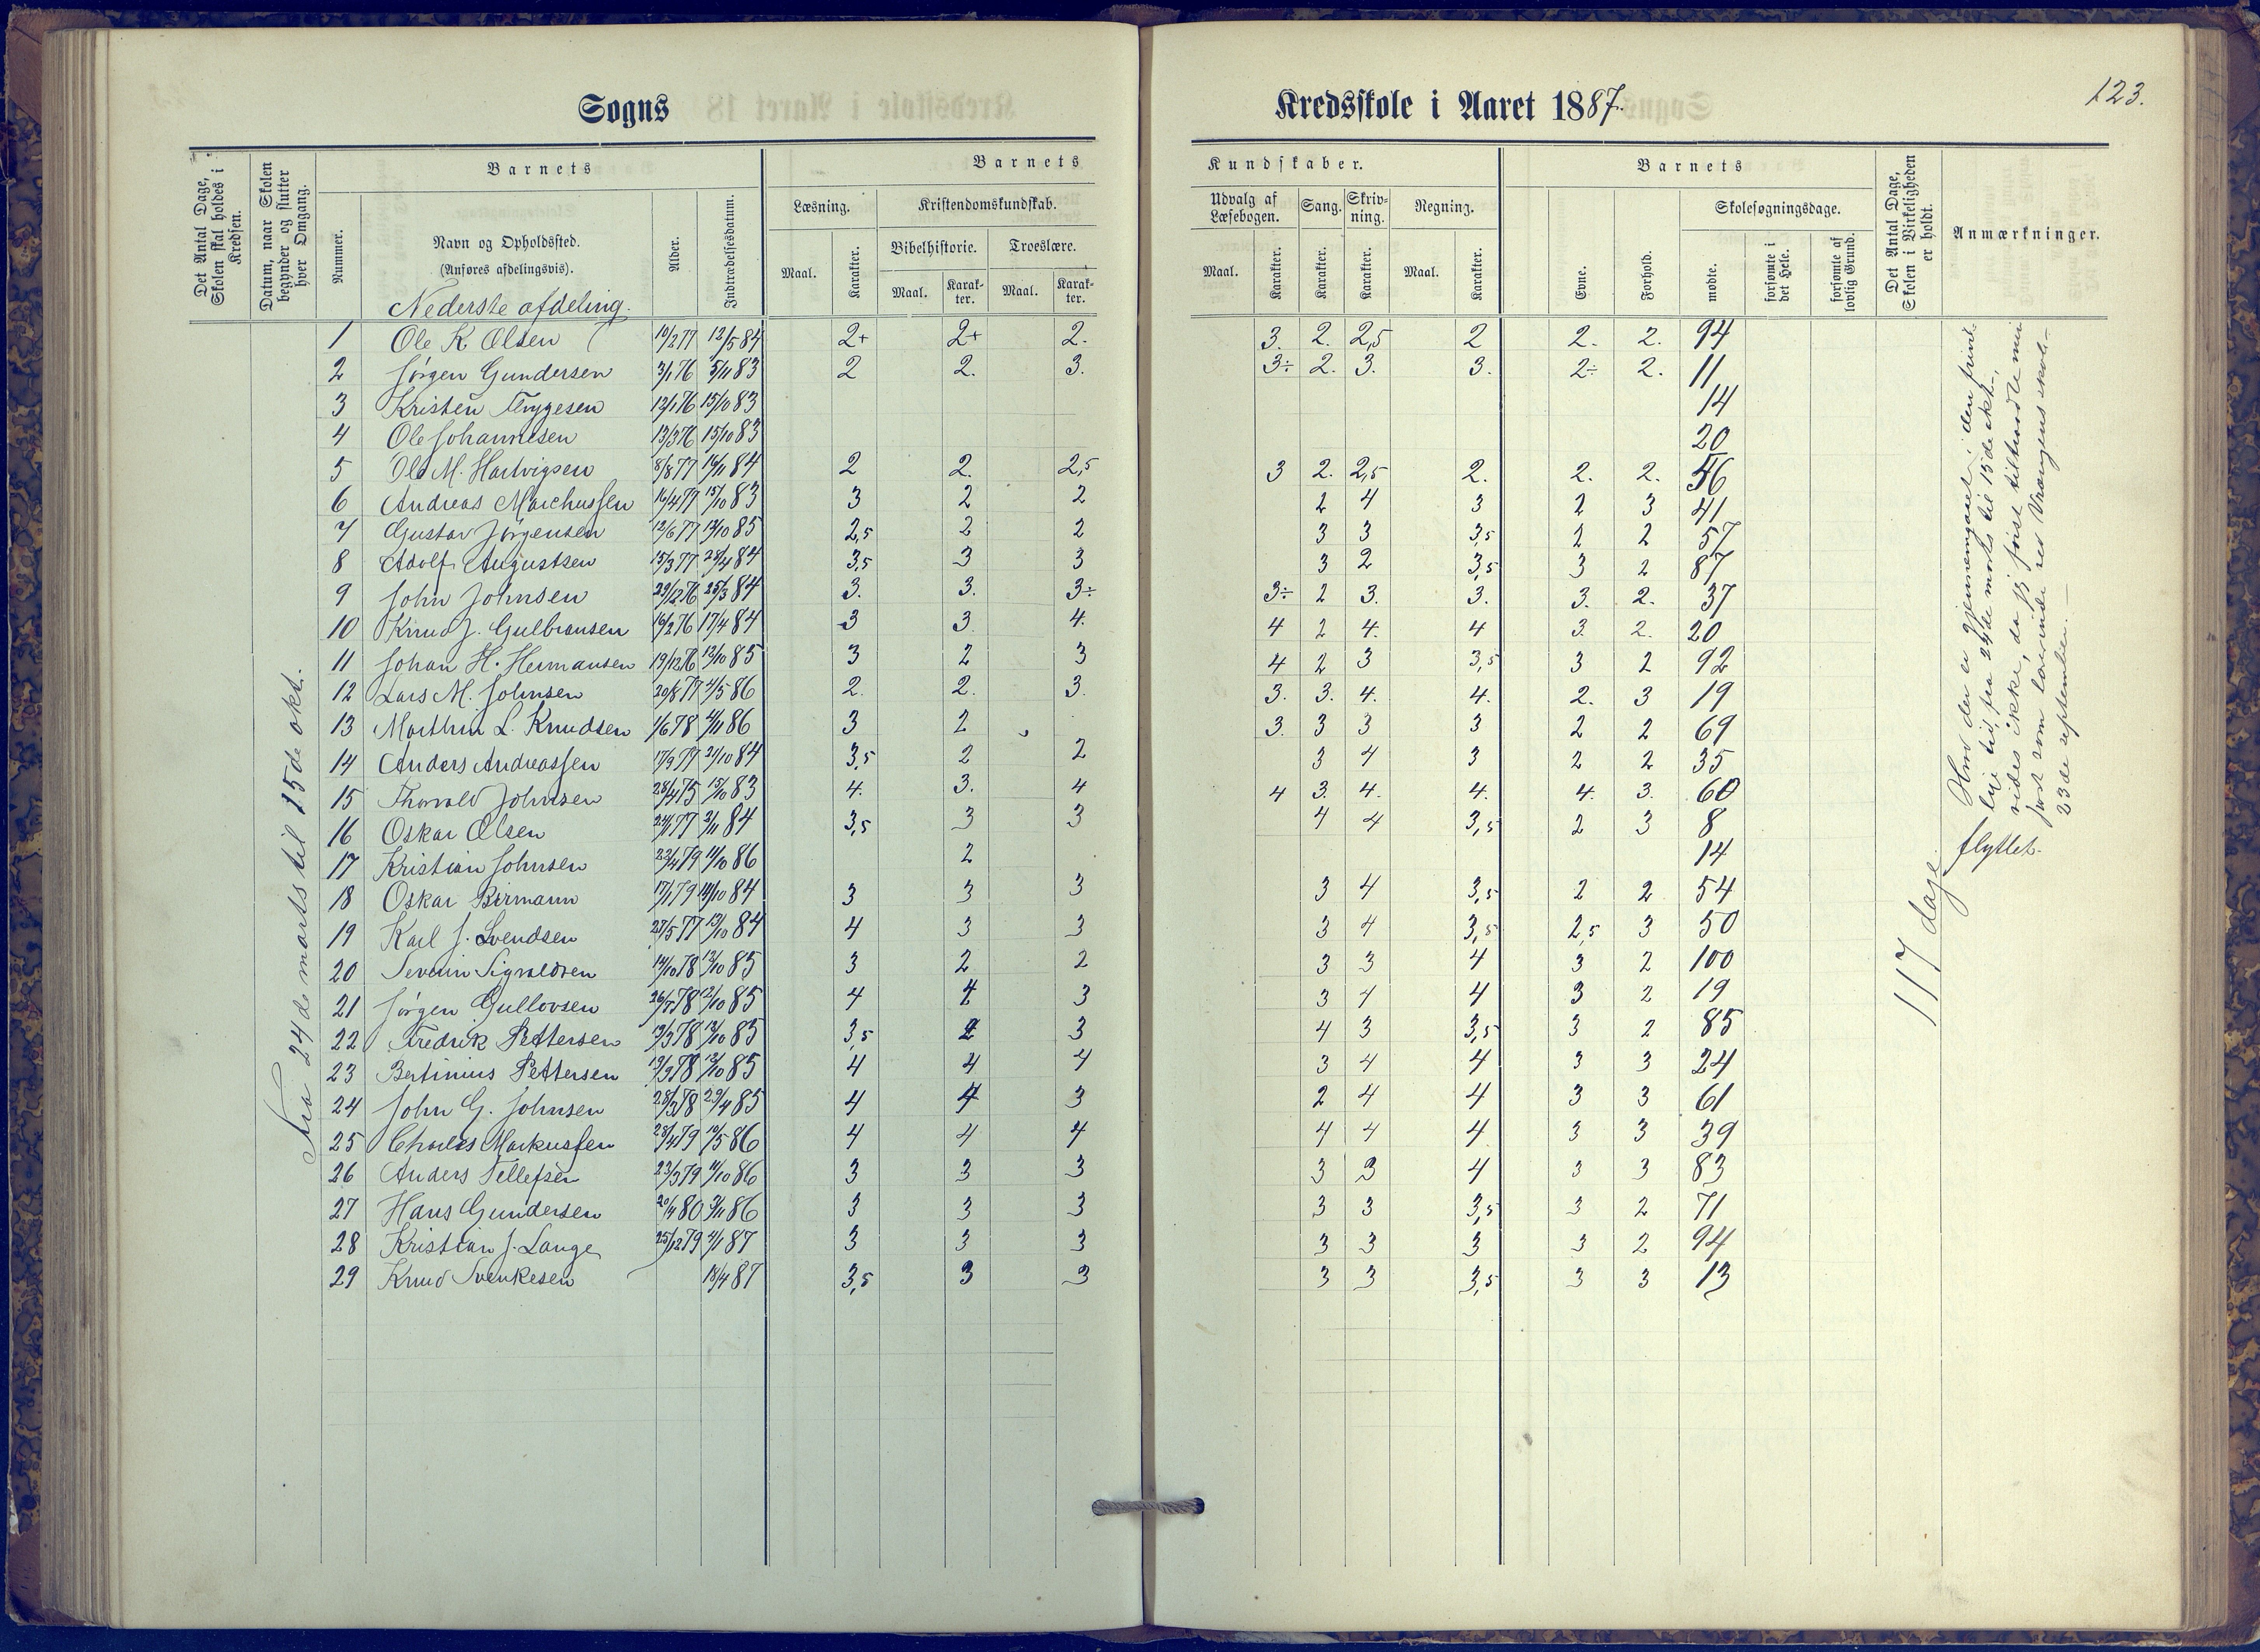 Sogns
Kredsskole i Aaret 1887.
123.
Det Antal Dage, Skolen skal holdes i Kredsen.
Datum, naar Skolen begynder og slutter hver Omgang.
Barnets
Nummer.
Navn og Opholdssted.
(Anføres afdelingsvis).
Nederste afdeling.
Alder.
Indtrædelsesdatum.
Barnets
Læsning.
Kristendomskundskab.
Bibelhistorie.
Troeslære.
Maal.
Karakter.
Maal.
Karak-
ter.
Maal.
Karak-
ter.
Kundskaber.
Udvalg af
Læsebogen.
Sang.
Skriv-
ning.
Regning.
Maal.
Karakter.
Karakter.
Karakter.
Maal.
Karakter.
Barnets
Evne.
Forhold.
Skolesøgningsdage.
mødte.
forsømte i det Hele.
forsømte af lovlig Grund.
Det Antal Dage, Skolen i Virkeligheden er holdt.
Anmærkninger.
Fra 24de marts til 15de okt.
1 Ole K Olsen 10/2 77 12/5 84 2+ 2+ 2. 3. 2. 2,5 2 2. 2. 94
2 Jørgen Gundersen 3/1 76 5/11 83 2 2. 3. 3÷ 2. 3. 3. 2÷ 2. 11
3 Kristen Trygesen 12/1 76 15/10 83 14
4 Ole Johannesen 13/3 76 15/10 83 20
5 Ole M. Hartvigsen 8/8 77 16/11 84 2 2. 2,5 3 2. 2,5 2. 2. 2. 56
6 Andreas Marchussen 16/4 77 15/10 83 3 2 2 2 4 3 2 3 41
7 Gustav Jörgensen 12/6 77 12/10 85 2,5 2 2 3 3 3,5 2 2 57
8 Adolf Augustsen 15/3 77 28/4 84 3,5 3 3 3 2 3,5 3 2 87
9 John Johnsen 29/12 76 25/3 84 3. 3. 3÷ 3÷ 2 3. 3. 3. 2. 37
10 Knud J. Gulbransen 16/2 76 17/4 84 3 3 4. 4 2 4. 4 3. 2. 20
11 Johan H. Hermansen 19/12 76 12/10 85 3 2 3 4 2 3 3,5 3 2 92
12 Lars M. Johnsen 20/8 77 4/5 86 2. 2. 3. 3. 3. 4. 4. 2. 3 19
13 Marthin L. Knudsen 1/6 78 4/11 86 3 2 3. 3 3 3 2 2 69
14 Anders Andreassen 17/9 77 21/10 84 3,5 2 2 3 4 3 2 2 35
15 Thorvald Johnsen 28/4 75 15/10 83 4. 3. 4 4 3. 4. 4. 4. 3. 60
16 Oskar Olsen 77 84 3,5 3 3 4 4 3,5 2 3 8
17 Kristian Johnsen 22/4 79 11/10 86 2 14 flyttet.
18 Oskar Birmann 17/1 79 84 3 3 3 3 4 3,5 2 2 54
19 Karl J. Svendsen 27/5 77 13/10 84 4 3 3 3 4 3,5 2,5 3 50
20 Severin Sigvaldsen 14/10 78 12/10 85 3 2 2 3 3 4 3 2 100
21 Jörgen Gullovsen 78 12/10 85 4 4 3 3 4 4 3 2 19
22 Fredrik Pettersen 13/9 78 12/10 85 3,5 2 3 4 3 3,5 3 2 85
23 Bertinius Pettersen 13/9 78 12/10 85 4 4 4 3 4 4 3 3 24
24 John G. Johnsen 28/3 78 29/4 85 4 4 3 2 4 4 3 3 61
25 Charles Markussen 28/4 79 10/5 86 4 4 4 4 4 4 3 3 39
26 Anders Tellefsen 23/3 79 11/10 86 3 3 3 3 3 4 3 3 83
27 Hans Gundersen 80 86 3 3 3 3 3 3,5 3 2 71
28 Kristian J. Lange 25/12 79 4/1 87 3 3 3 3 3 3 3 2 94
29 Knud Svenkesen 18/4 87 3,5 3 3 3 3 3,5 3 3 13
117 dage
Hvad der er gjennemgaaet i den
tid, fra 24de marts til 15de okt.,
vides ikke, da jeg først tiltraadte min
post som lærerinde ved Vrangens skole
23de september.